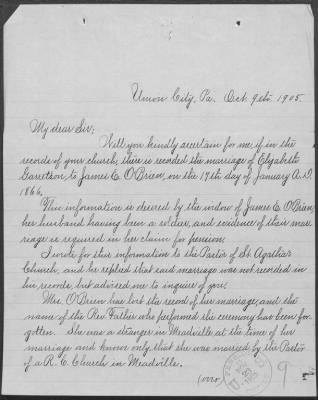 Union City, Pa. Oct. 9th 1905.
My dear Sir;
Will you kindly ascertain for me, if in the
records of your church, there is recorded the marriage of Elizabeth
Garretson, to James E. O'Brien, on the 17th day of January A.D.
1866.
This information is desired by the widow of James E. O'Brien,
her husband having been a soldier, and evidence of their mar-
riage is required in her claim for pension.
I wrote for this information to the Pastor of St. Agatha's
Church, and he replied that said marriage was not recorded in
his records but advised me to inquire of you.
Mrs. O'Brien has lost the record of her marriage, and the
name of the Rev. Father who performed the ceremony has been for-
gotten. She was a stranger in Meadville at the time of her
marriage and knows only that she was married by the Pastor
of a R. C. Church in Meadville.
(over)
9